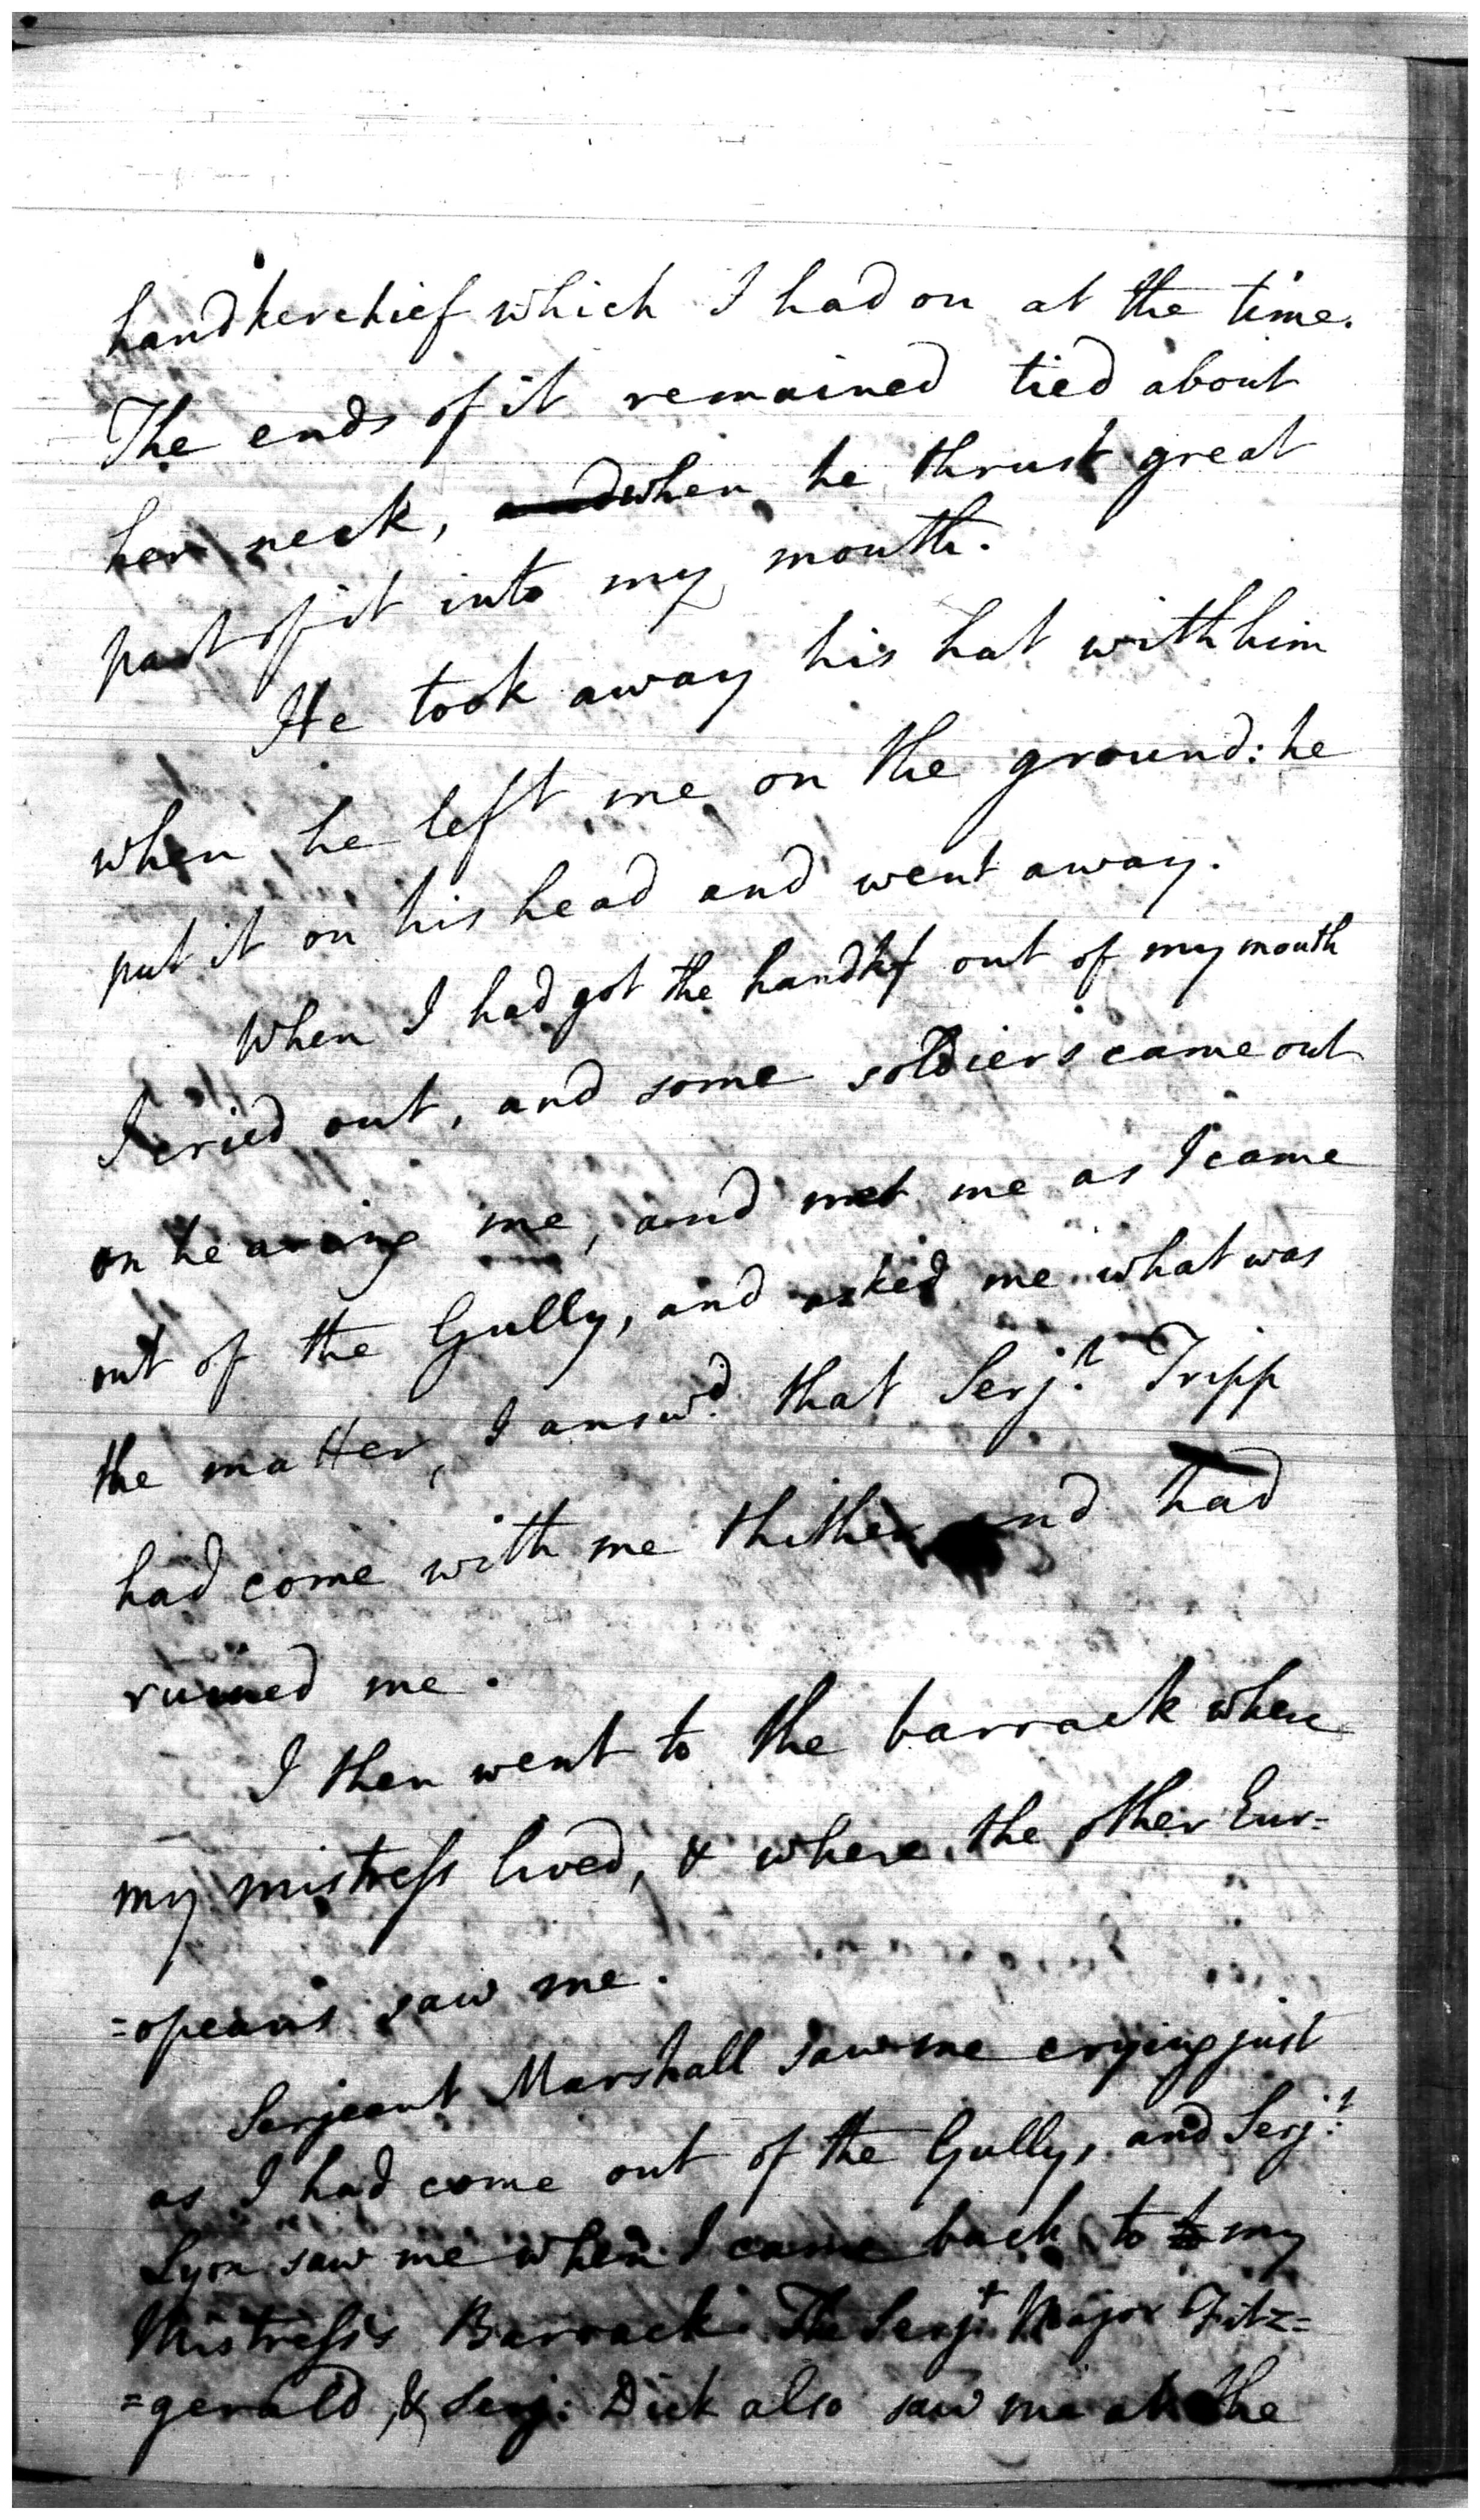 handkerchief which I had on at the time.
The ends of it remained tied about
her neck, and when he thrust great
part of it into my mouth.
He took away his hat with him
when he left me on the ground: he
put it on his head and went away.
When I had got the handkf out of my mouth
I cried out, and some soldiers came out
on hearing me, and met me as I came
out of the Gully, and asked me what was
the matter, I answd. that Serjt. Tripp
had come with me thither and had
ruined me.
I then went to the barrack where
my mistress lived, & where the other Eur=
=opeans saw me.
Serjeant Marshall saw me crying just
as I had come out of the Gully, and Serjt.
Lyon saw me when I came back to my
Mistress's Barrack. The Serjt. Major Fitz=
=gerald, & Serj. Dick also saw me at the